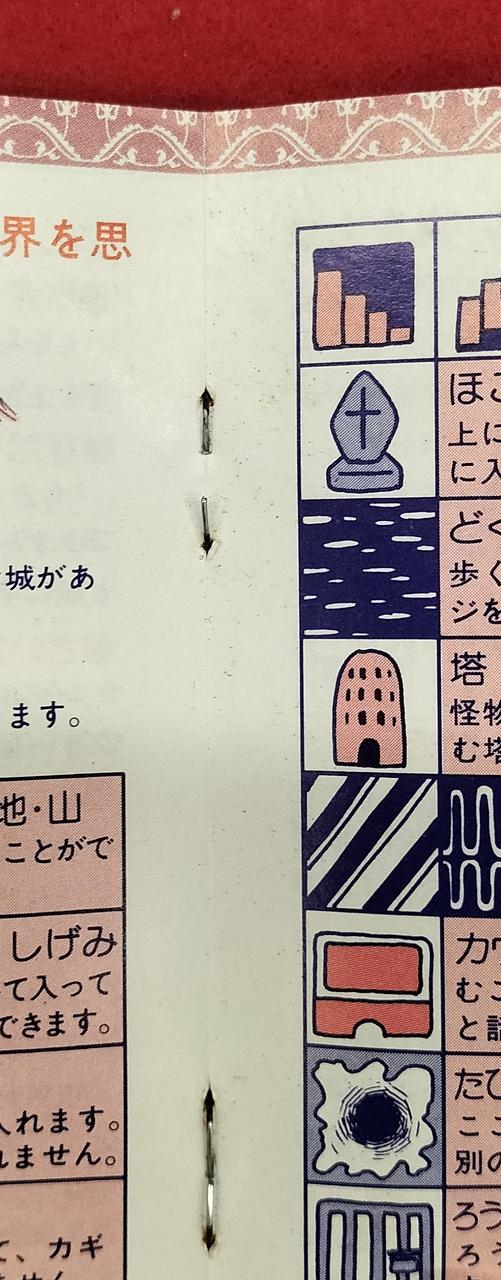 界を思
城があ
ます。
地・山
ことがで
しげみ
て入って
できます。
入れます。
れません。
て、カギ
ほこ
上に
に入
どく
歩く
ジを
塔
怪物
む塔
カウ
むこ
と話
たび
ここ
別の
ろう
ろう